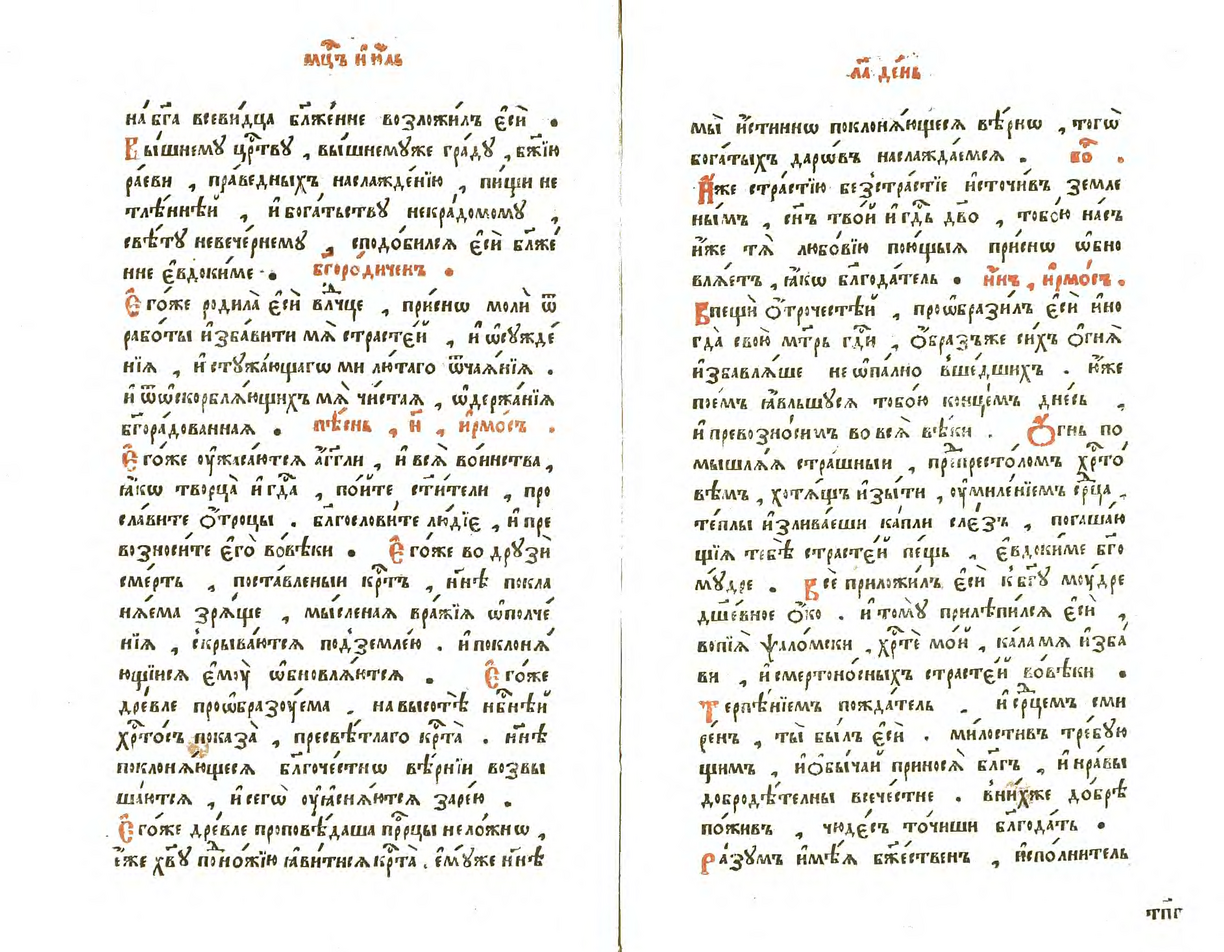 мц҃ъ і҆ю҆́ль
на бг҃а всеви́дца бл҃же́нне возложи́лъ є҆сѝ .
Вы́шнему црⷭ҇тву , вы́шнемуже гра́ду , бж҃їю
ра́еви , пра́ведныхъ наслажде́нїю , пи́щи не
тлѣ́ннѣй , и҆ бога́тьству некра́домому ,
свѣ́ту невече́рнему , сподо́бился є҆сѝ бл҃же́
нне є҆ѵдоки́ме . бг҃оро́диченъ .
Є҆го́же родила̀ є҆сѝ влⷣчце , при́снѡ молѝ ѿ
рабо́ты и҆зба́вити мѧ̀ страсте́й , и҆ ѡ҆сужде́
нїѧ , и҆ стужа́ющагѡ ми лю́таго ѿча́ѧнїѧ .
и҆ ѿѡ҆скорблѧ́ющихъ мѧ̀ чи́стаѧ , ѡ҆держа́нїѧ
бг҃ора́дованнаѧ . пѣ́снь , и҃ , і҆рмо́съ .
Є҆го́же ᲂу҆жаса́ютсѧ а҆́гг҃ли , и҆ всѧ̀ во́инства ,
ꙗ҆́кѡ творца̀ и҆ гдⷭ҇а , по́йте ст҃и́тели , про
сла́вите ѻ҆́троцы . благослови́те лю́дїе , и҆ пре
возноси́те є҆го̀ во вѣ́ки . Є҆го́же во дру́зїй
сме́рть , поста́вленый крⷭ҇тъ , нн҃ѣ покла
нѧ́ема зрѧ́ще , мы́сленаѧ вра́жїѧ ѡ҆полче́
нїѧ , скрыва́ютсѧ под̾ земле́ю . и҆ поклонѧ́
ющїисѧ є҆моу̀ ѡ҆бновлѧ́ютсѧ . Є҆го́же
дре́вле проѡ҆бразоу́ема , на высотѣ̀ нбⷭ҇нѣй
хрⷭ҇то́съ показа̀ , пресвѣ́тлаго крⷭ҇та̀ . нн҃ѣ
поклонѧ́ющесѧ благоче́стнѡ вѣ́рнїи возвы
ша́ютсѧ , и҆ сегѡ̀ ᲂу҆ꙗснѧ́ютсѧ заре́ю .
Є҆го́же дре́вле проповѣ́даша прⷪ҇ро́цы нело́жнѡ ,
е҆́же хв҃у подно́жїю ꙗ҆ви́тисѧ крⷭ҇та̀ , є҆му́же нн҃ѣ
л҃а де́нь
мы̀ и҆́стиннѡ поклонѧ́ющесѧ вѣ́рнѡ , тогѡ̀
бога́тыхъ дарѡ́въ наслажда́емсѧ . бо҃ .
И҆́же стра́стїю безстра́стїе и҆сточи́въ земле
ны́мъ , сн҃ъ тво́й и҆ гдⷭ҇ь дв҃о , тобо́ю на́съ
и҆́же тѧ̀ любо́вїю пою́щыѧ при́снѡ ѡ҆бно
влѧ́етъ , ꙗ҆́кѡ благода́тель . и҆́нъ , і҆рмо́съ .
Впещѝ ѻ҆́трочестѣй , проѡ҆брази́лъ є҆сѝ и҆но
гда̀ свою̀ мт҃рь гдⷭ҇и , ѻ҆́бразъже си́хъ ѻ҆гнѧ̀
и҆збавлѧ́ше не ѡ҆па́лно в̾ше́дшихъ . ю҆́же
пое́мъ ꙗ҆́вльшусѧ тобо́ю конце́мъ дне́сь ,
и҆ превозно́симъ во всѧ̀ вѣ́ки . Ѻ҆́гнь по
мышлѧ́ѧ стра́шныи , пред̾престо́ломъ хрⷭ҇то́
вѣмъ , хотѧ́щъ и҆зы́ти , ᲂу҆миле́нїемъ срⷣца ,
те́плы и҆злива́еши ка́пли сле́зъ , погаша́ю
щїѧ тебѣ̀ страсте́й пе́щь , є҆ѵдоки́ме бг҃о
мꙋ́дре . Всѐ приложи́лъ є҆сѝ к̾ бг҃у моу́дре
дш҃е́вное ѻ҆́ко . и҆ томꙋ̀ прилѣпи́лсѧ є҆сѝ ,
вопїѧ̀ ѱало́мски , хрⷭ҇тѐ мо́й , ка́ла мѧ̀ и҆зба́
ви , и҆ смертоно́сныхъ страсте́й во вѣ́ки .
Терпѣ́нїемъ пожда́тель . и҆ срⷣцемъ сми
ре́нъ , ты̀ бы́лъ є҆сѝ . ми́лостивъ тре́бую
щимъ , и҆ ѻ҆бы́чаи приносѧ̀ бл҃гъ , и҆ нра́вы
добродѣ́телны всече́стне . в̾ни́хже до́брѣ
пожи́въ , чюде́съ то́чиши благода́ть .
Ра́зумъ и҆мѣ́ѧ бжⷭ҇ественъ , и҆сполни́тель
тп҃г